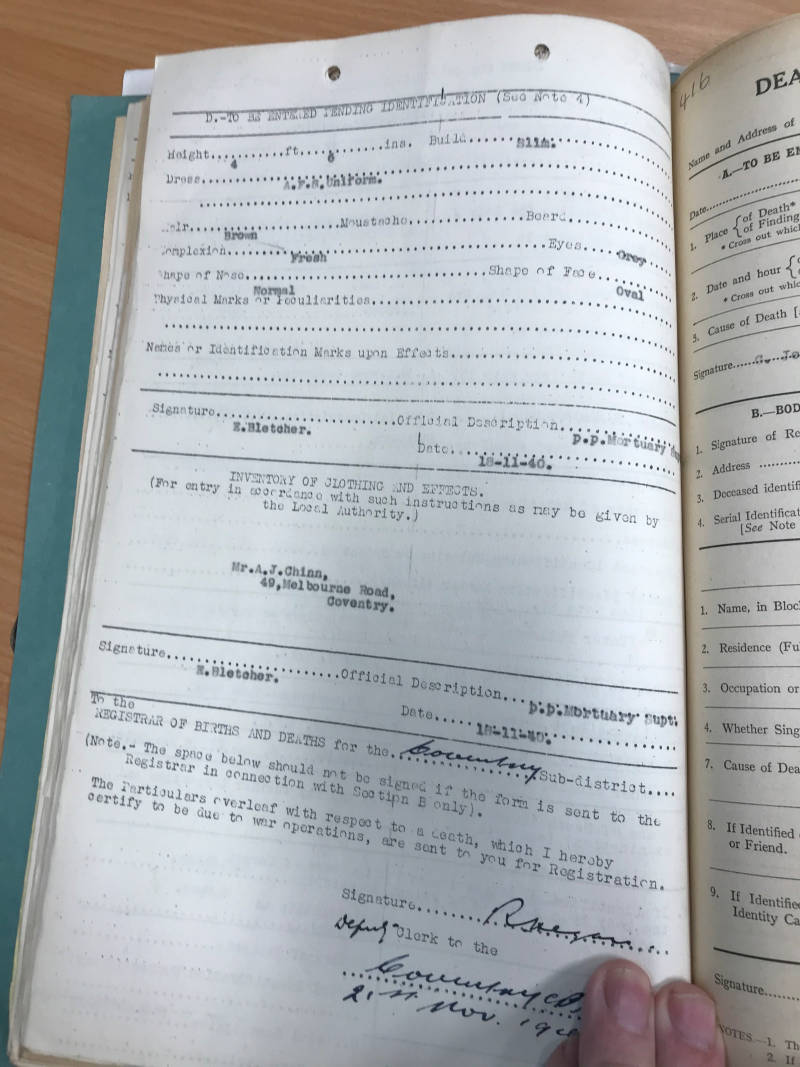 D.-TO BE ENTERED PENDING IDENTIFICATION (See Note 4)
Height..........ft..........ins. Build.......Slim.
4 6
Dress.......A.F.S.Uniform.
Hair..........Moustache..........Beard.......
Brown
Complexion..........Eyes....Grey
Fresh
Shape of Nose..........Shape of Face....
Normal Oval
Physical Marks or Peculiarities..........
Names or Identification Marks upon Effects..........
Signature..........Official Description....p.p.Mortuary
E.Bletcher.
Date....
18-11-40.
INVENTORY OF CLOTHING AND EFFECTS.
(For entry in accordance with such instructions as may be given by
the Local Authority.)
Mr.A.J.Chinn,
49,Melbourne Road,
Coventry.
Signature..........Official Description....p.p.Mortuary Supt.
E.Bletcher.
Date....
18-11-40.
To the
REGISTRAR OF BIRTHS AND DEATHS for the...Coventry Sub-district....
(Note.- The space below should not be signed if the form is sent to the
Registrar in connection with Section B only).
The Particulars overleaf with respect to a death, which I hereby
certify to be due to war operations, are sent to you for Registration.
Signature..........
Deputy Clerk to the
Coventry
21st Nov.
416
DEA
Name and Address of
A.—TO BE EN
Date
1. Place {of Death*
of Finding
* Cross out which
2. Date and hour {
* Cross out whic
3. Cause of Death [
Signature
B.—BOD
1. Signature of Re
2. Address
3. Deceased identifi
4. Serial Identificat
[See Note
1. Name, in Bloc
2. Residence (Fu
3. Occupation or
4. Whether Sing
7. Cause of Dea
8. If Identified
or Friend.
9. If Identified
Identity Ca
Signature
NOTES—1. Th
2. If